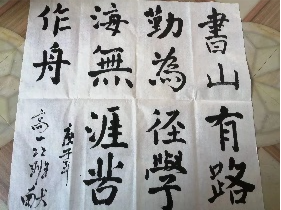 書山有路
勤為径學
海無涯苦
作舟
庚子年
高一